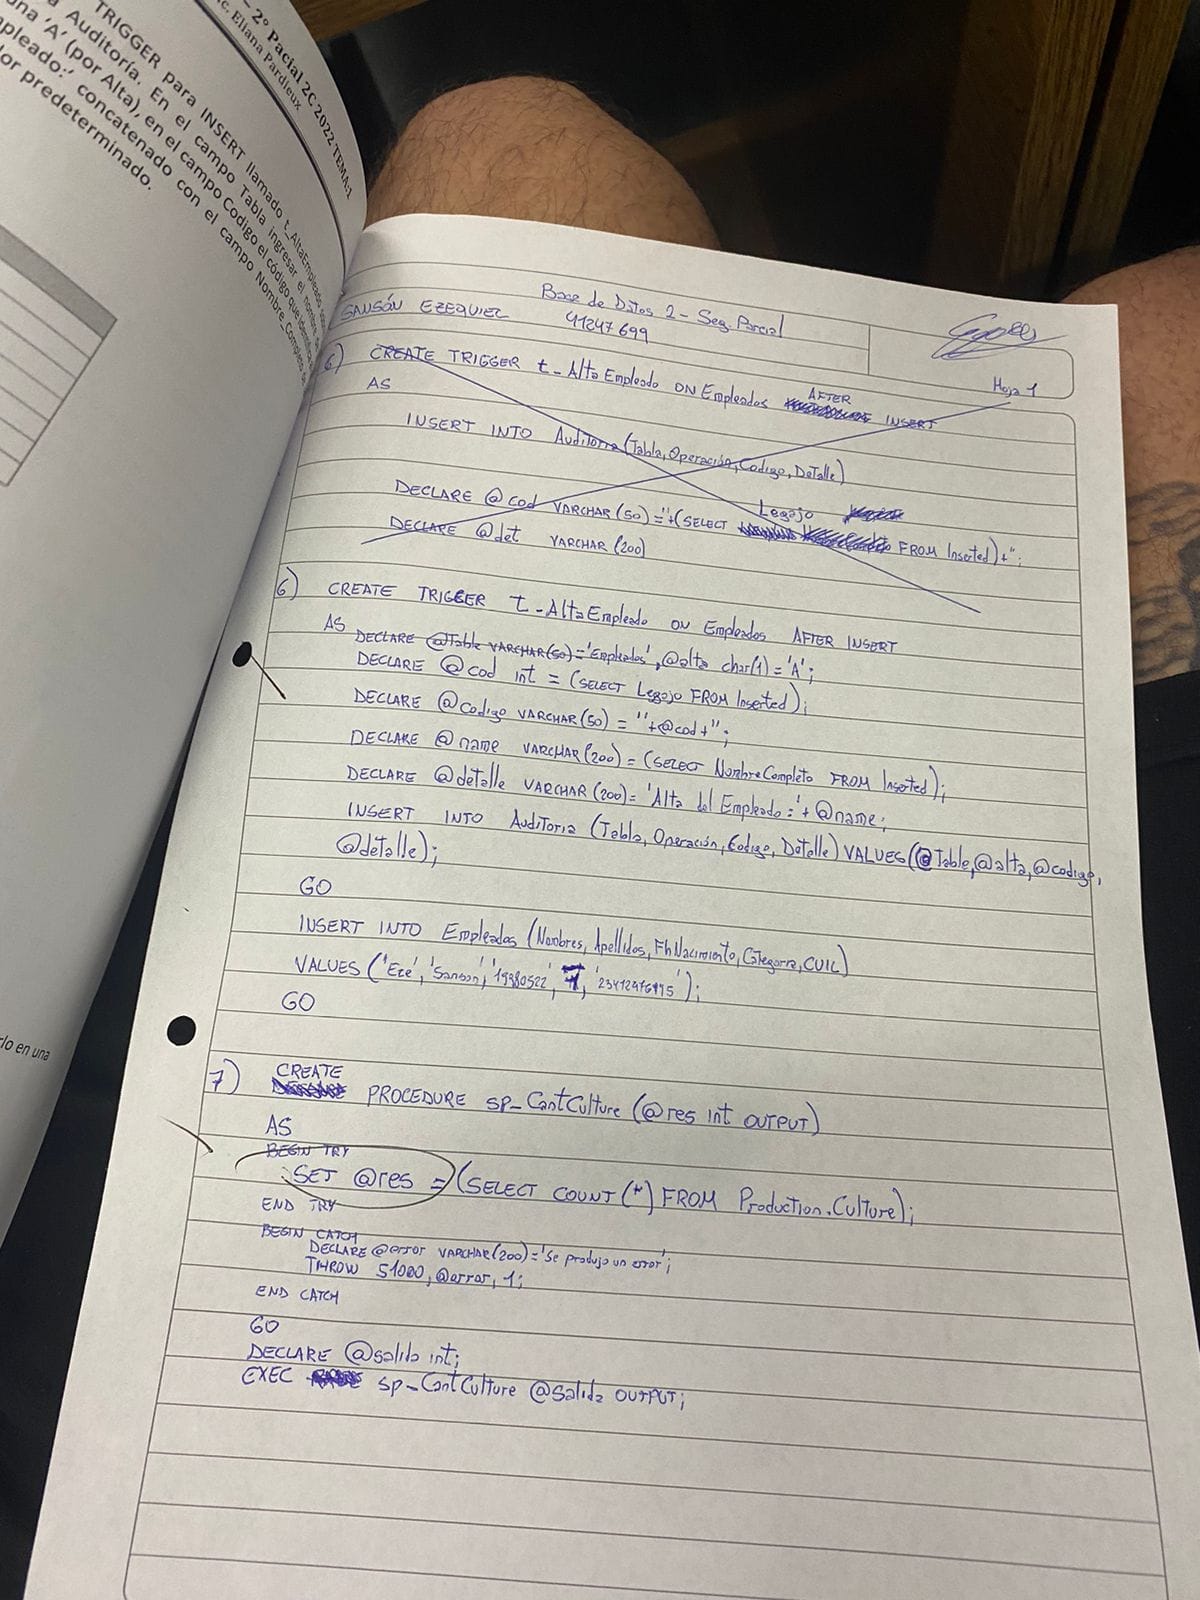 - 2º Pacial 2C 2022 TEMA:1
c. Eliana Pardieux
TRIGGER para INSERT llamado t_AltaEmpleado
a Auditoría. En el campo Tabla ingresar el
una 'A' (por Alta), en el campo Codigo el código que
pleado:' concatenado con el campo Nombre_Completo
or predeterminado.
rlo en una
Base de Datos 2 - Seg. Parcial
SANSÓN EZEQUIEL 41247699
Hoja 1
6) CREATE TRIGGER t_AltaEmpleado ON Empleados AFTER INSERT
AS
INSERT INTO Auditoria (Tabla, Operación, Codigo, Detalle)
DECLARE @cod VARCHAR(50)=''+(SELECT Legajo FROM Inserted)+'';
DECLARE @det VARCHAR(200)
6) CREATE TRIGGER t_AltaEmpleado ON Empleados AFTER INSERT
AS DECLARE @Table VARCHAR(50)='Empleados', @alta char(1)='A';
DECLARE @cod int = (SELECT Legajo FROM Inserted);
DECLARE @codigo VARCHAR(50) = ''+@cod+'';
DECLARE @name VARCHAR(200)=(SELECT NombreCompleto FROM Inserted);
DECLARE @detalle VARCHAR(200)='Alta del Empleado:'+ @name;
INSERT INTO Auditoria (Tabla, Operación, Codigo, Detalle) VALUES(@Table,@alta,@codigo,
@detalle);
GO
INSERT INTO Empleados (Nombres, Apellidos, FhNacimiento, Categoria, CUIL)
VALUES ('Eze', 'Sanson', '19980522', 7, '23412476995');
GO
7) CREATE PROCEDURE sp_CantCulture (@res int OUTPUT)
AS
BEGIN TRY
SET @res = (SELECT COUNT(*) FROM Production.Culture);
END TRY
BEGIN CATCH
DECLARE @error VARCHAR(200)='Se produjo un error';
THROW 51000, @error, 1;
END CATCH
GO
DECLARE @salida int;
EXEC sp_CantCulture @salida OUTPUT;